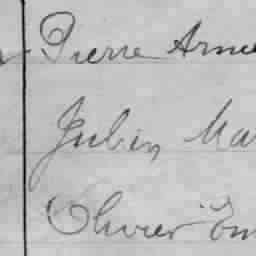 Pierre Arme
Julien Ma
Olivier Em